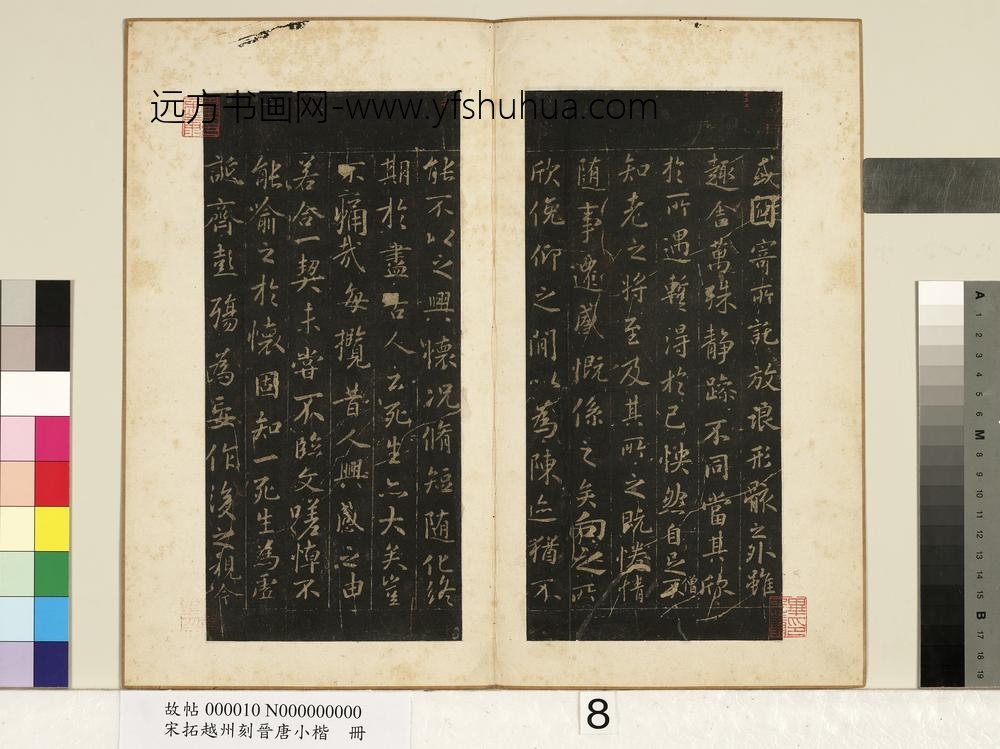 远方书画网-www.yfshuhua.com
或因寄所託放浪形骸之外雖
趣舍萬殊静躁不同當其欣
於所遇蹔得於己怏然自足不
僧
知老之將至及其所之既惓情
随事遷感慨係之矣向之所
欣俛仰之閒以為陳迹猶不
能不以之興懷況脩短随化終
期於盡古人云死生亦大矣豈
不痛哉每攬昔人興感之由
若合一契未甞不臨文嗟悼不
能喻之於懷固知一死生為虚
誕齊彭殤為妄作後之視今
故帖 000010 N000000000
宋拓越州刻晉唐小楷 冊
8
A 1 2 3 4 5 6 M 8 9 10 11 12 13 14 15 B 17 18 19